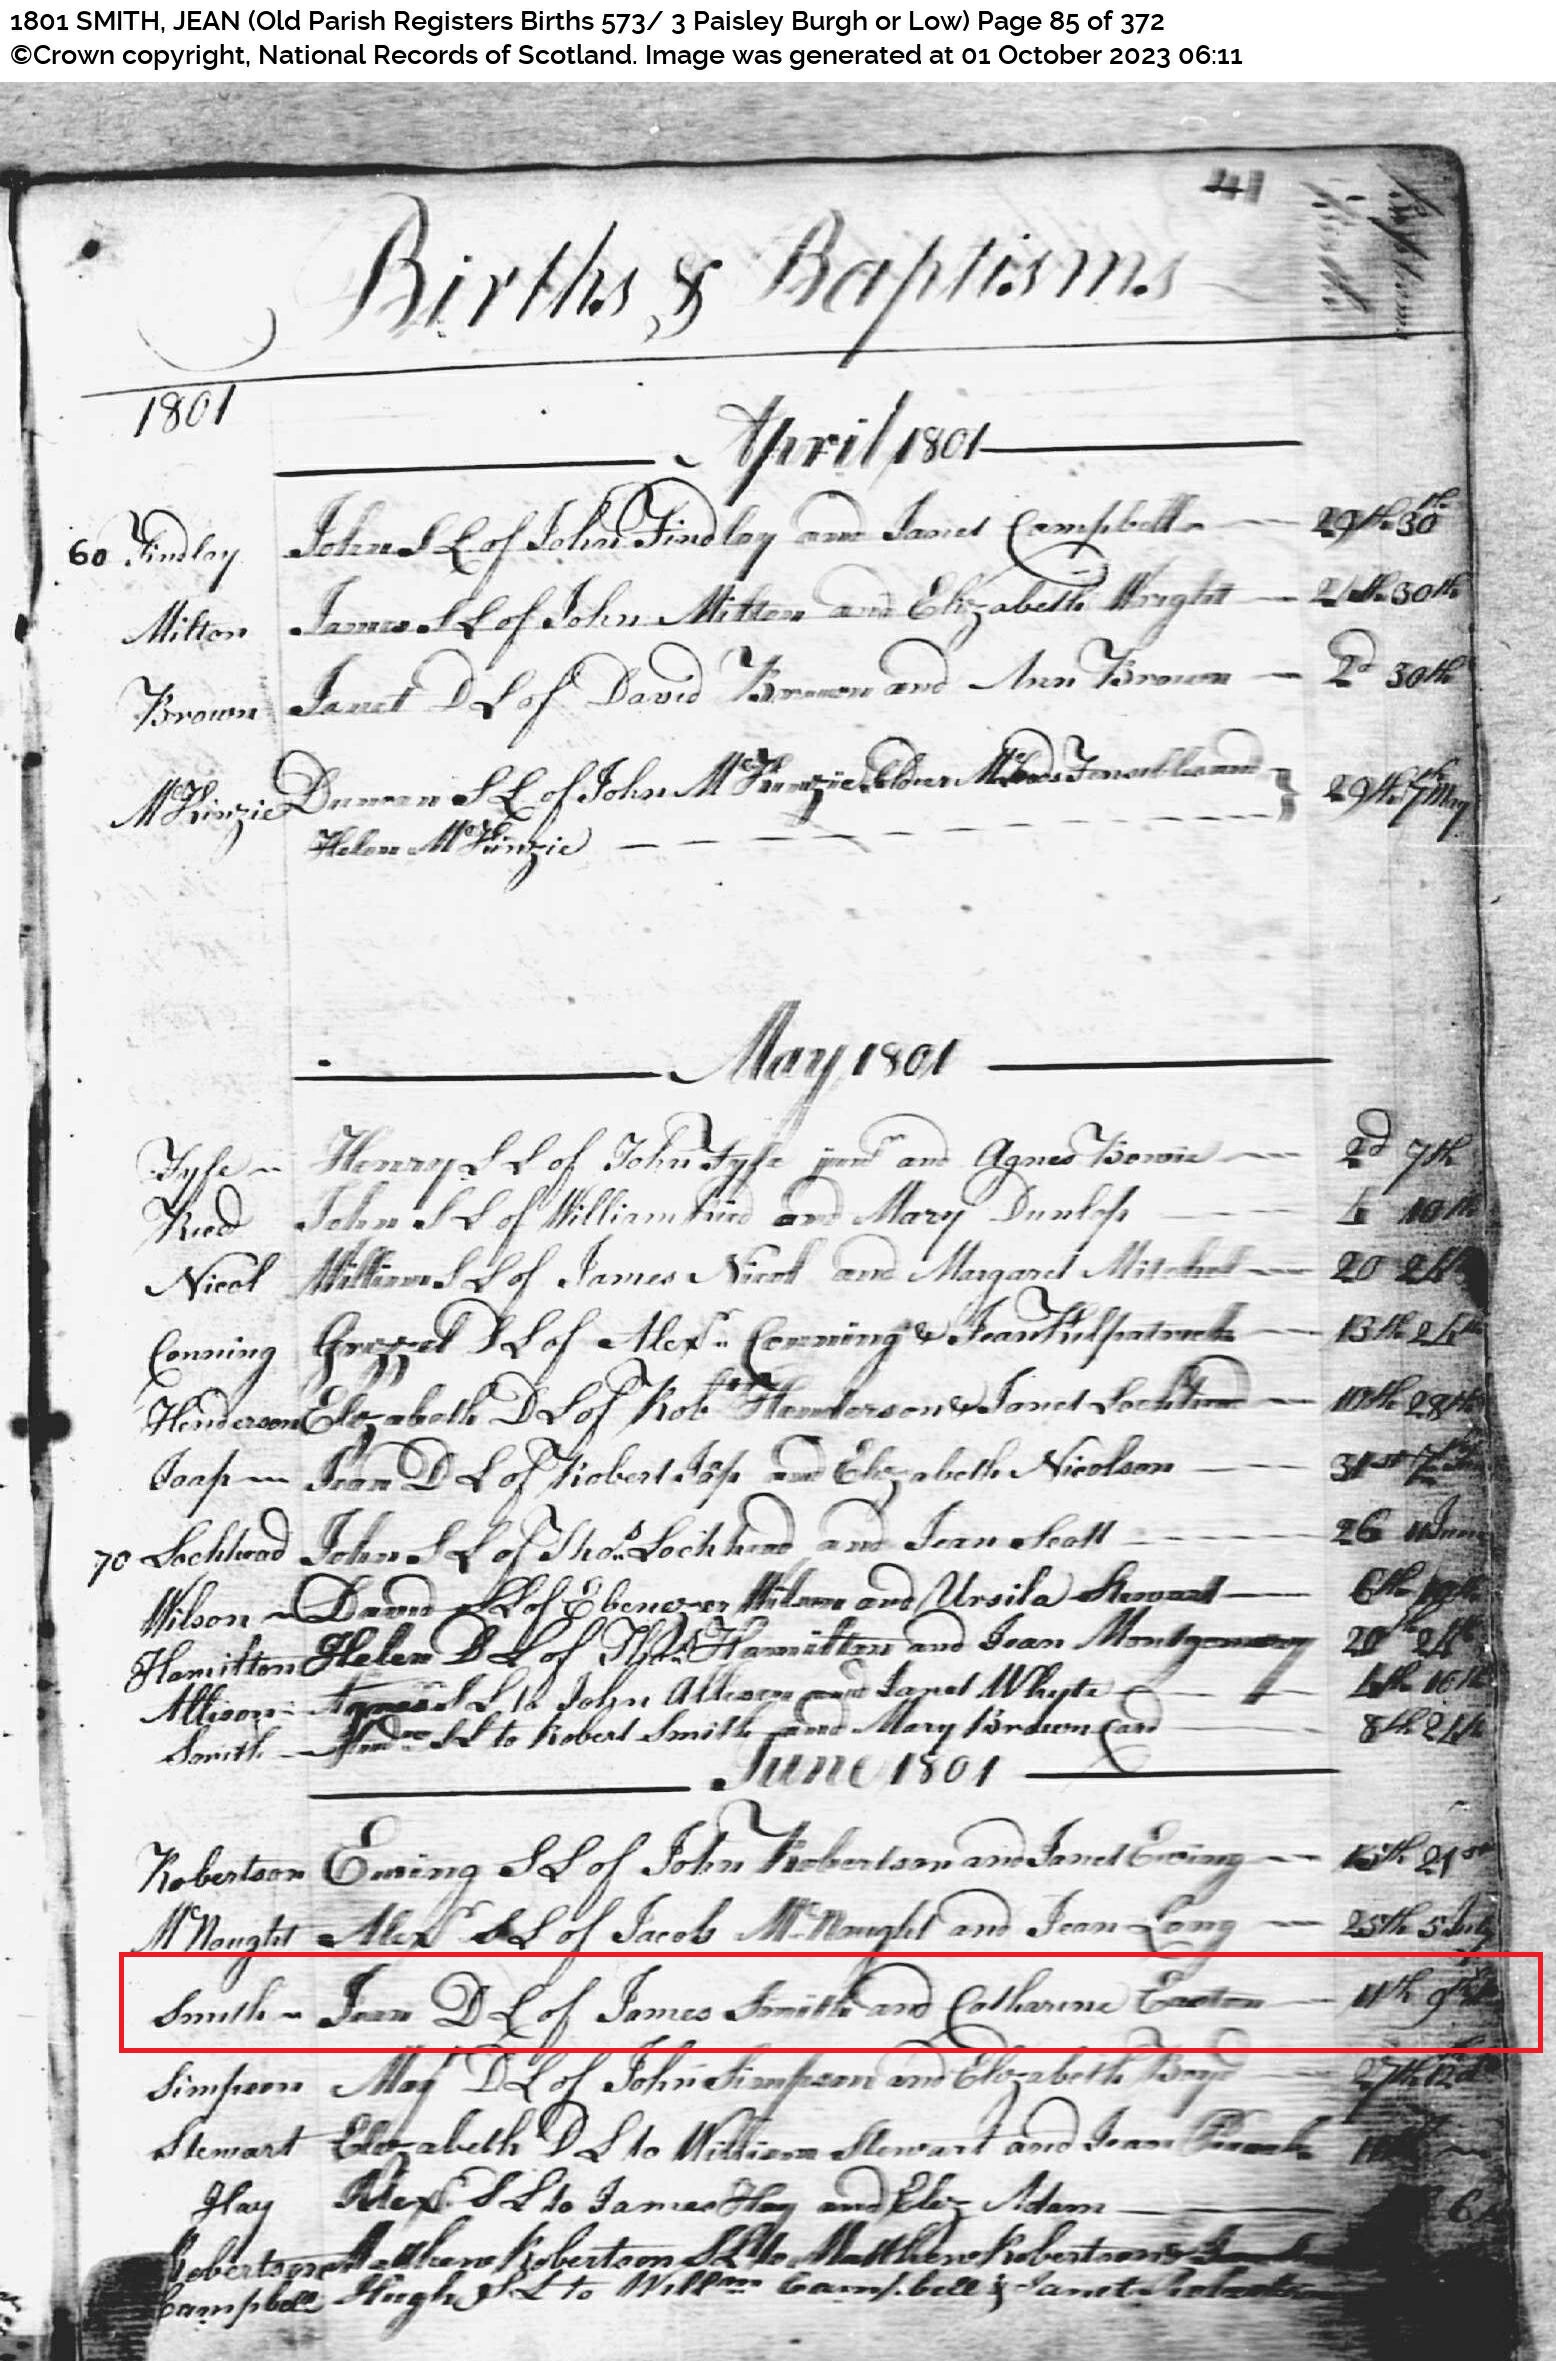 1801 SMITH, JEAN (Old Parish Registers Births 573/ 3 Paisley Burgh or Low) Page 85 of 372
©Crown copyright, National Records of Scotland. Image was generated at 01 October 2023 06:11
41
Births & Baptisms
1801
April 1801
60 Findlay John S L of John Findlay and Janet Campbell 29th 30th
Milton James S L of John Milton and Elizabeth Wright 30th
Brown Janet D L of David Brown and Ann Brown 2d 30th
McKinzie Duncan S L of John McKinzie and 29th 7th May
Helen McKinzie
May 1801
Fyfe Henry S L of John Fyfe junr and Agnes Bowie 2d 7th
Reed John S L of William Reed and Mary Dunlop 4 10th
Nicol William S L of James Nicol and Margaret Mitchel 20 24th
Conning Grizzel D L of Alexr Conning & Jean Kilpatrick 13th 24th
Henderson Elizabeth D L of Robt Henderson & Janet Lochhead 10th 28th
Jaap Jean D L of Robert Jap and Elizabeth Nicolson 31st 7th
70 Lochhead John S L of Thos Lochhead and Jean Scott 26 11 June
Wilson David S L of Ebenezer Wilson and Ursila Stewart 6th
Hamilton Helen D L of Thos Hamilton and Jean Montgomery 20th 24th
Allison S L to John Allison and Janet Whyte 4th 10th
Smith Andw S L to Robert Smith and Mary Brown 8th 24th
June 1801
Robertson Ewing S L of John Robertson and Janet Ewing 21st
McNaught Alexr S L of Jacob McNaught and Jean Lang 25th 5 July
Smith Jean D L of James Smith and Catharine Easton 11th 9th
Simpson May D L of John Simpson and Elizabeth Boyd 27th 12
Stewart Elizabeth D L to William Stewart and Jean
Hay Alexr S L to James Hay and Eliz Adam 6
Robertson Matthew Robertson S L to Matthew Robertson &
Campbell Hugh S L to Willam Campbell & Janet